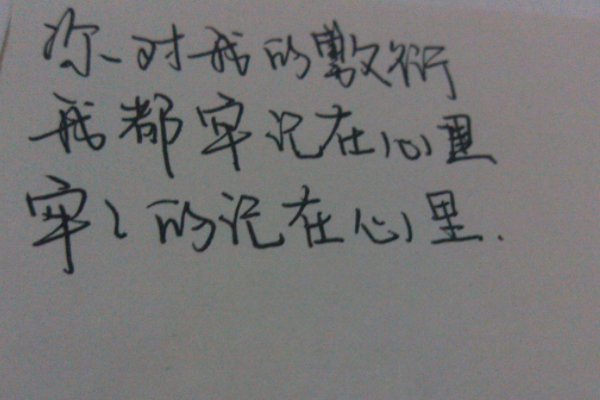 你对我的敷衍
我都牢记在心里
牢々的记在心里.